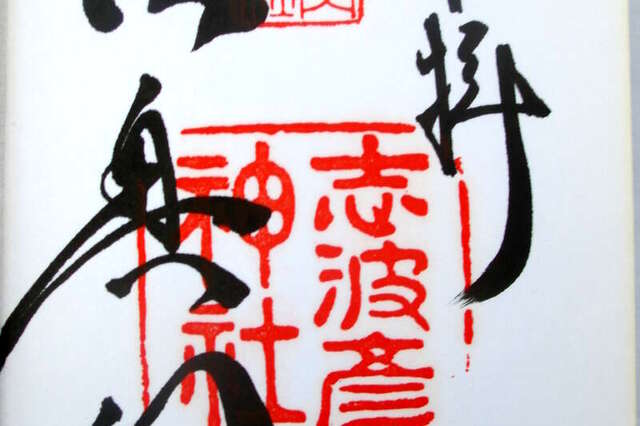 拝
志波彦
神社
奥